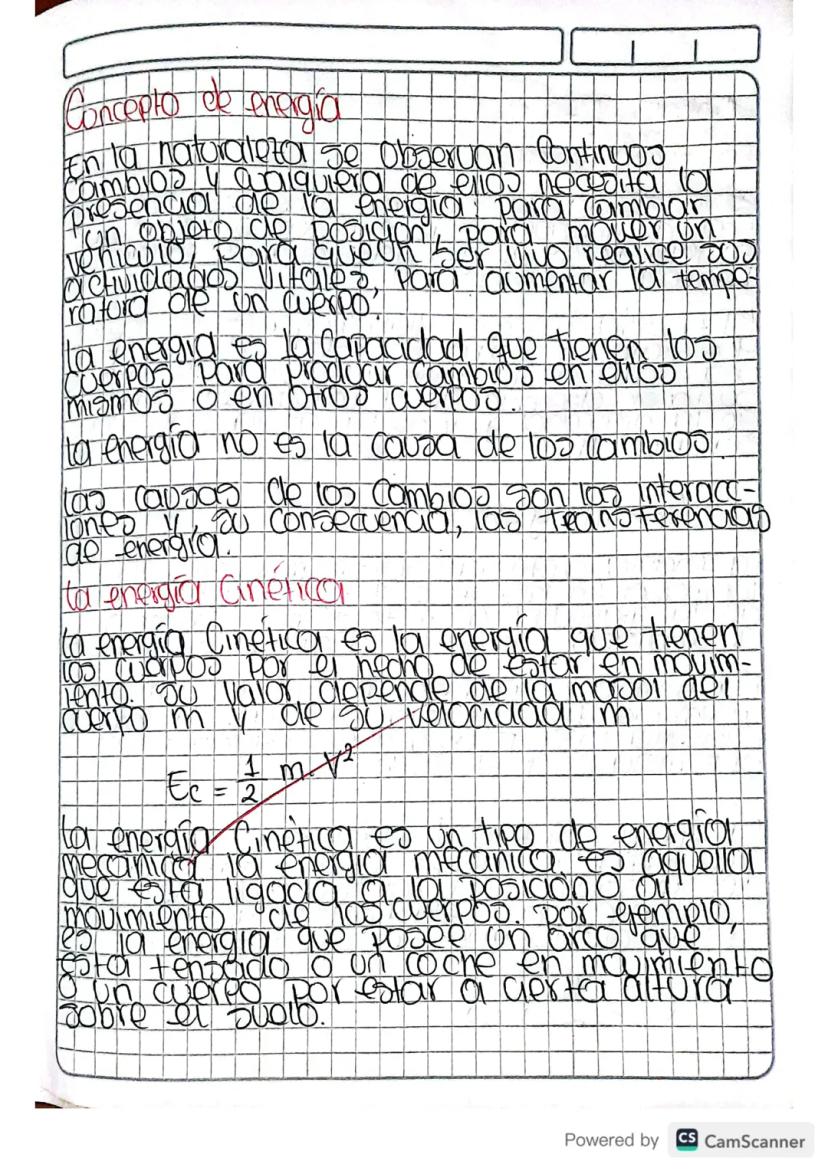 Concepto de energía
En la naturaleza se observan continuos
cambios y cualquiera de ellos necesita la
presencia de la energía: para cambiar
un objeto de posición, para mover un
vehículo, para que un ser vivo realice sus
actividades vitales, para aumentar la tempe-
ratura de un cuerpo.
La energía es la capacidad que tienen los
cuerpos para producir cambios en ellos
mismos o en otros cuerpos.
La energía no es la causa de los cambios.
Las causas de los cambios son las interacc-
iones y, su consecuencia, las transferencias
de energía.
La energía Cinética
La energía Cinética es la energía que tienen
los cuerpos por el hecho de estar en movim-
iento. Su valor depende de la masa del
cuerpo m y de su velocidad m
Ec = 1/2 m. V²
La energía Cinética es un tipo de energía
mecánica la energía mecánica es aquella
que está ligada a la posición o al
movimiento de los cuerpos. por ejemplo,
es la energía que posee un arco que
está tensado o un coche en movimiento
o un cuerpo por estar a cierta altura
sobre el suelo.
Powered by CS CamScanner